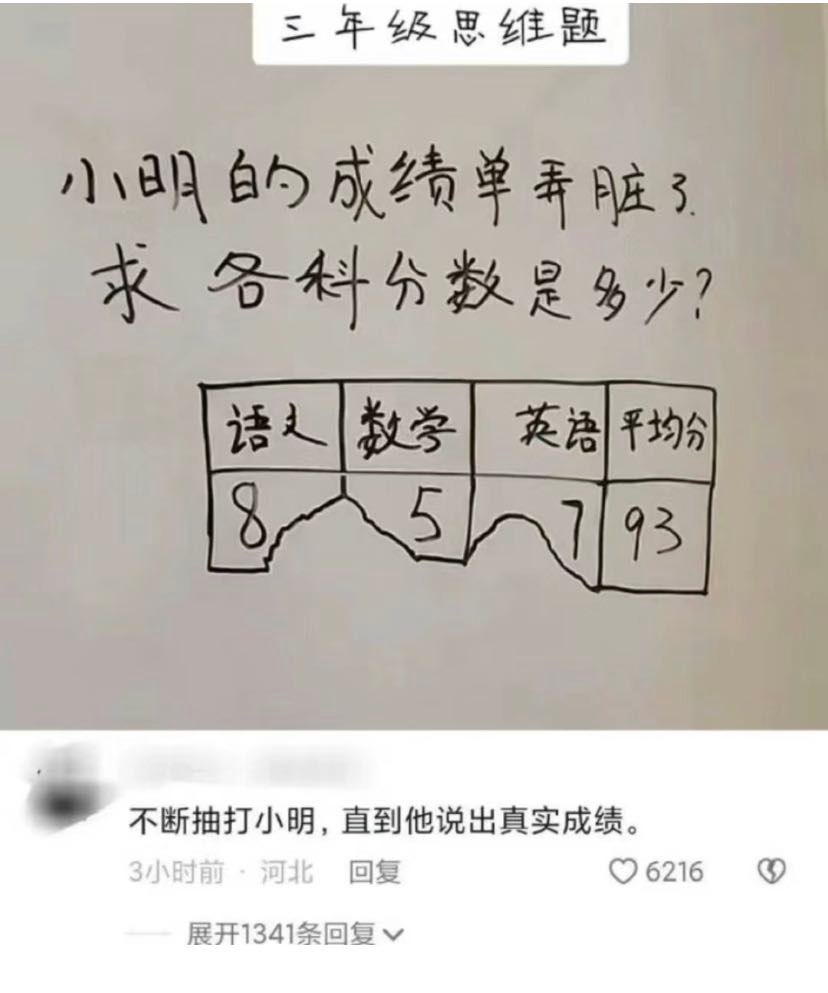 三年级思维题
小明的成绩单弄脏了.
求各科分数是多少?
语文 数学 英语 平均分
8 5 7 93
不断抽打小明，直到他说出真实成绩。
3小时前 · 河北 回复 6216
展开1341条回复